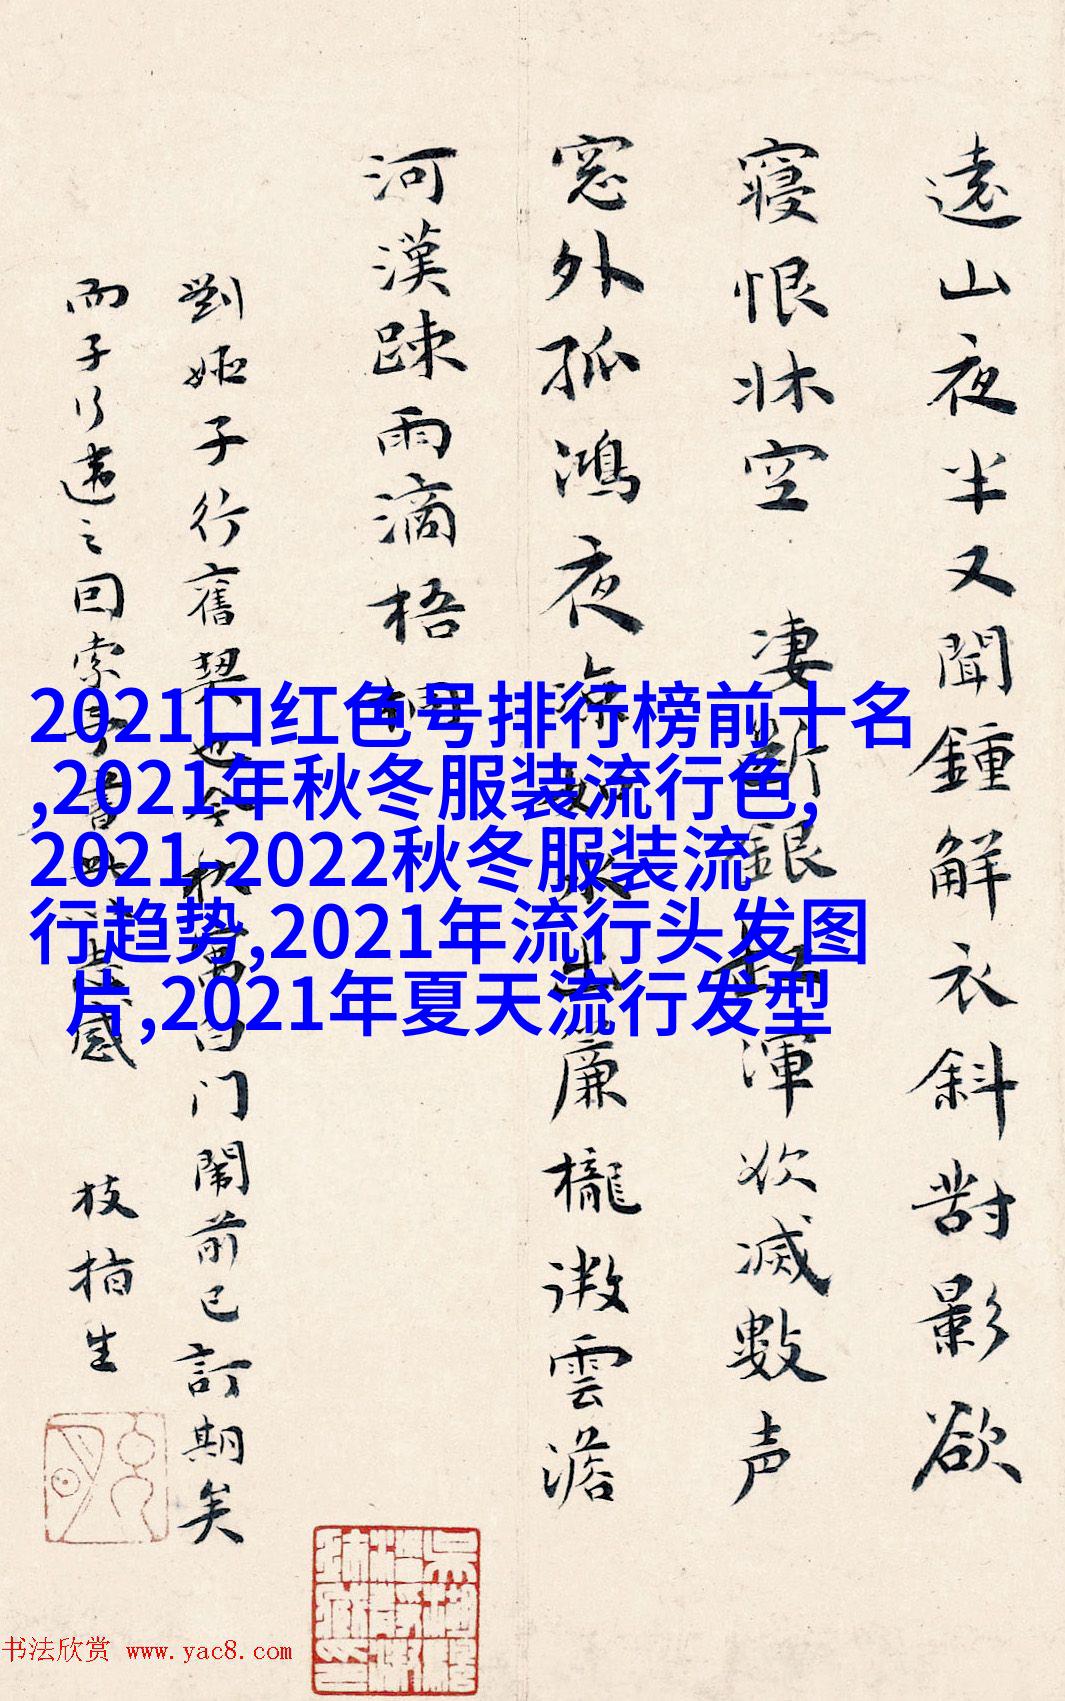 遠山夜半又聞鍾解衣斜對影欲
寢恨牀空 凄斷銀渾欲滅數声
窓外孤鴻夜涼如水出廉櫳微雲澹
河漢疎雨滴梧桐
劉姬子行舊契也今秋寓白門鬧前已訂期矣
而子行違之回索書此感 枝指生
2021口红色号排行榜前十名
,2021年秋冬服装流行色,
2021-2022秋冬服装流
行趋势,2021年流行头发图
片,2021年夏天流行发型
书法欣赏 www.yac8.com